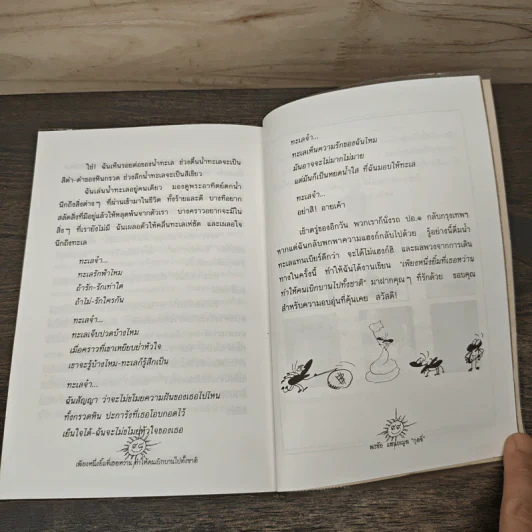 ใช่! ฉันเห็นรอยต่อของน้ำทะเล ช่วงตื้นน้ำทะเลจะเป็น
สีดำ-ดำของหินกรวด ช่วงลึกน้ำทะเลจะเป็นสีเขียว
ฉันเล่นน้ำทะเลอยู่คนเดียว มองดูพระอาทิตย์ตกน้ำ
นึกถึงสิ่งต่าง ๆ ที่ผ่านเข้ามาในชีวิต ทั้งร้ายและดี บางทีอยาก
สลัดสิ่งที่มีอยู่แล้วให้หลุดพ้นจากตัวเรา บางคราวอยากจะมีใน
สิ่ง ๆ ที่เรายังไม่มี ฉันเผลอตัวให้คลื่นทะเลเห่ซัด และเผลอใจ
นึกถึงทะเล
ทะเลจ๋า...
ทะเลรักฟ้าไหม
ถ้ารัก-รักเท่าใด
ถ้าไม่-รักใครกัน
ทะเลเจ็บปวดบ้างไหม
เมื่อคราวที่เขาเหยียบย่ำหัวใจ
เขาจะรู้บ้างไหม-ทะเลก็รู้สึกเป็น
ทะเลจ๋า...
ฉันสัญญา ว่าจะไม่ขโมยความฝันของเธอไปไหน
ทั้งกรวดหิน ปะการังที่เธอโอบกอดไว้
เย็นใจได้-ฉันจะไม่ขโมยหัวใจของเธอ
เพียงหนึ่งยิ้มที่เธอหวาน ทำให้คนเบิกบานไปทั้งชาติ
ทะเลจ๋า...
ทะเลเห็นความรักของฉันไหม
มันอาจจะไม่มากไม่มาย
แต่มันก็เป็นหยดน้ำใส ที่ฉันมอบให้ทะเล
ทะเลจ๋า...
อย่าสิ! อายเค้า
เช้าตรู่ของอีกวัน พวกเราก็นั่งรถ ปอ.๑ กลับกรุงเทพฯ
หากแต่ฉันกลับพกพาความแฮงก์กลับไปด้วย รู้อย่างนี้ดื่มน้ำ
ทะเลแทนเบียร์ดีกว่า จะได้ไม่แฮงก์ฮิ และผลพวงจากการเดิน
ทางในครั้งนี้ ทำให้ฉันได้งานเขียน "เพียงหนึ่งยิ้มที่เธอหวาน
ทำให้คนเบิกบานไปทั้งชาติ" มาฝากคุณๆ ที่รักด้วย ขอบคุณ
สำหรับความอบอุ่นที่คุ้นเคย สวัสดี!